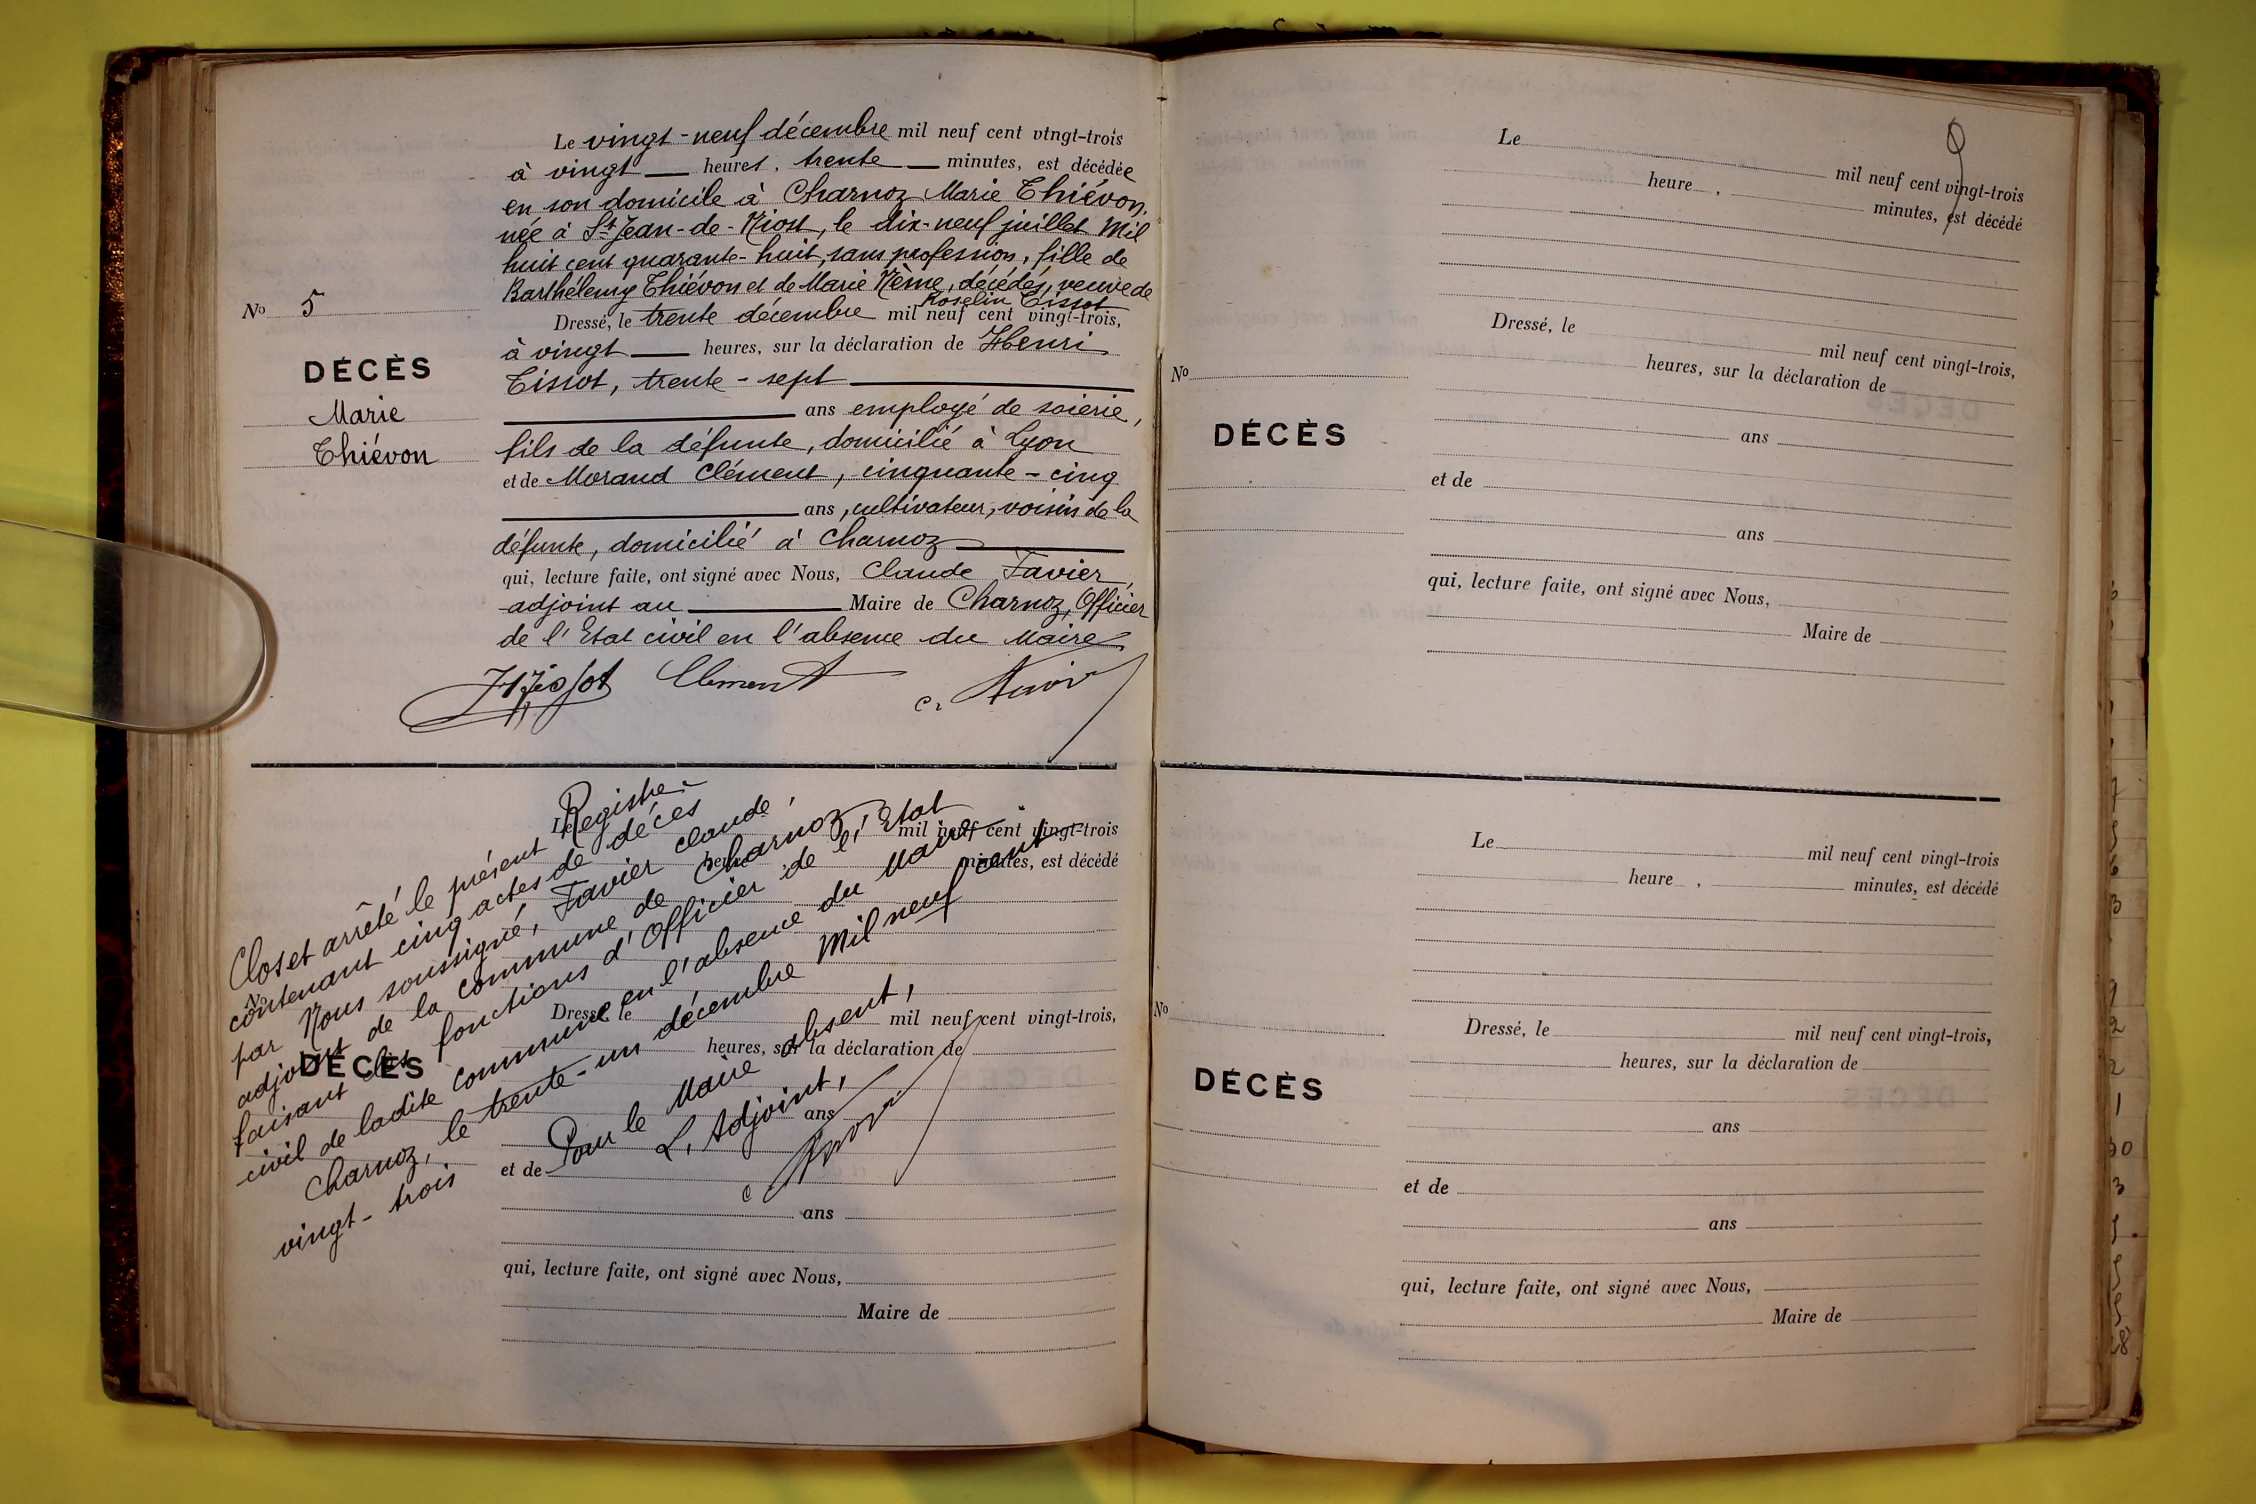 Le vingt-neuf décembre mil neuf cent vingt-trois
à vingt heures, trente minutes, est décédée
en son domicile à Charnoz Marie Thiévon,
née à St Jean-de-Niost, le dix-neuf juillet Mil
huit cent quarante-huit, sans profession, fille de
Barthélemy Thiévon et de Marie Nème, décédés, veuve de
Roselin Tissot
Dressé, le trente décembre mil neuf cent vingt-trois,
à vingt heures, sur la déclaration de Henri
Tissot, trente-sept
ans employé de soierie,
fils de la défunte, domicilié à Lyon
et de Morand Clément, cinquante-cinq
ans, cultivateur, voisin de la
défunte, domicilié à Charnoz
qui, lecture faite, ont signé avec Nous, Claude Favier,
adjoint au Maire de Charnoz, Officier
de l'Etat civil en l'absence du Maire
No 5
DÉCÈS
Marie
Thiévon
H Tissot Clément
Clos et arrêté le présent Registre
contenant cinq actes de décès
par Nous soussigné, Favier Claude,
adjoint de la commune de Charnoz
faisant les fonctions d'Officier de l'Etat
civil de ladite commune en l'absence du Maire
Charnoz, le trente-un décembre Mil neuf cent
vingt-trois
Pour le Maire absent,
L'Adjoint,
Le mil neuf cent vingt-trois
heure minutes, est décédé
No
Dressé, le mil neuf cent vingt-trois,
heures, sur la déclaration de
DÉCÈS
ans
et de
ans
qui, lecture faite, ont signé avec Nous,
Maire de
Le mil neuf cent vingt-trois
heure , minutes, est décédé
Dressé, le mil neuf cent vingt-trois,
No heures, sur la déclaration de
DÉCÈS
ans
et de
ans
qui, lecture faite, ont signé avec Nous,
Maire de
Le mil neuf cent vingt-trois
heure , minutes, est décédé
No
Dressé, le mil neuf cent vingt-trois,
heures, sur la déclaration de
DÉCÈS
ans
et de
ans
qui, lecture faite, ont signé avec Nous,
Maire de